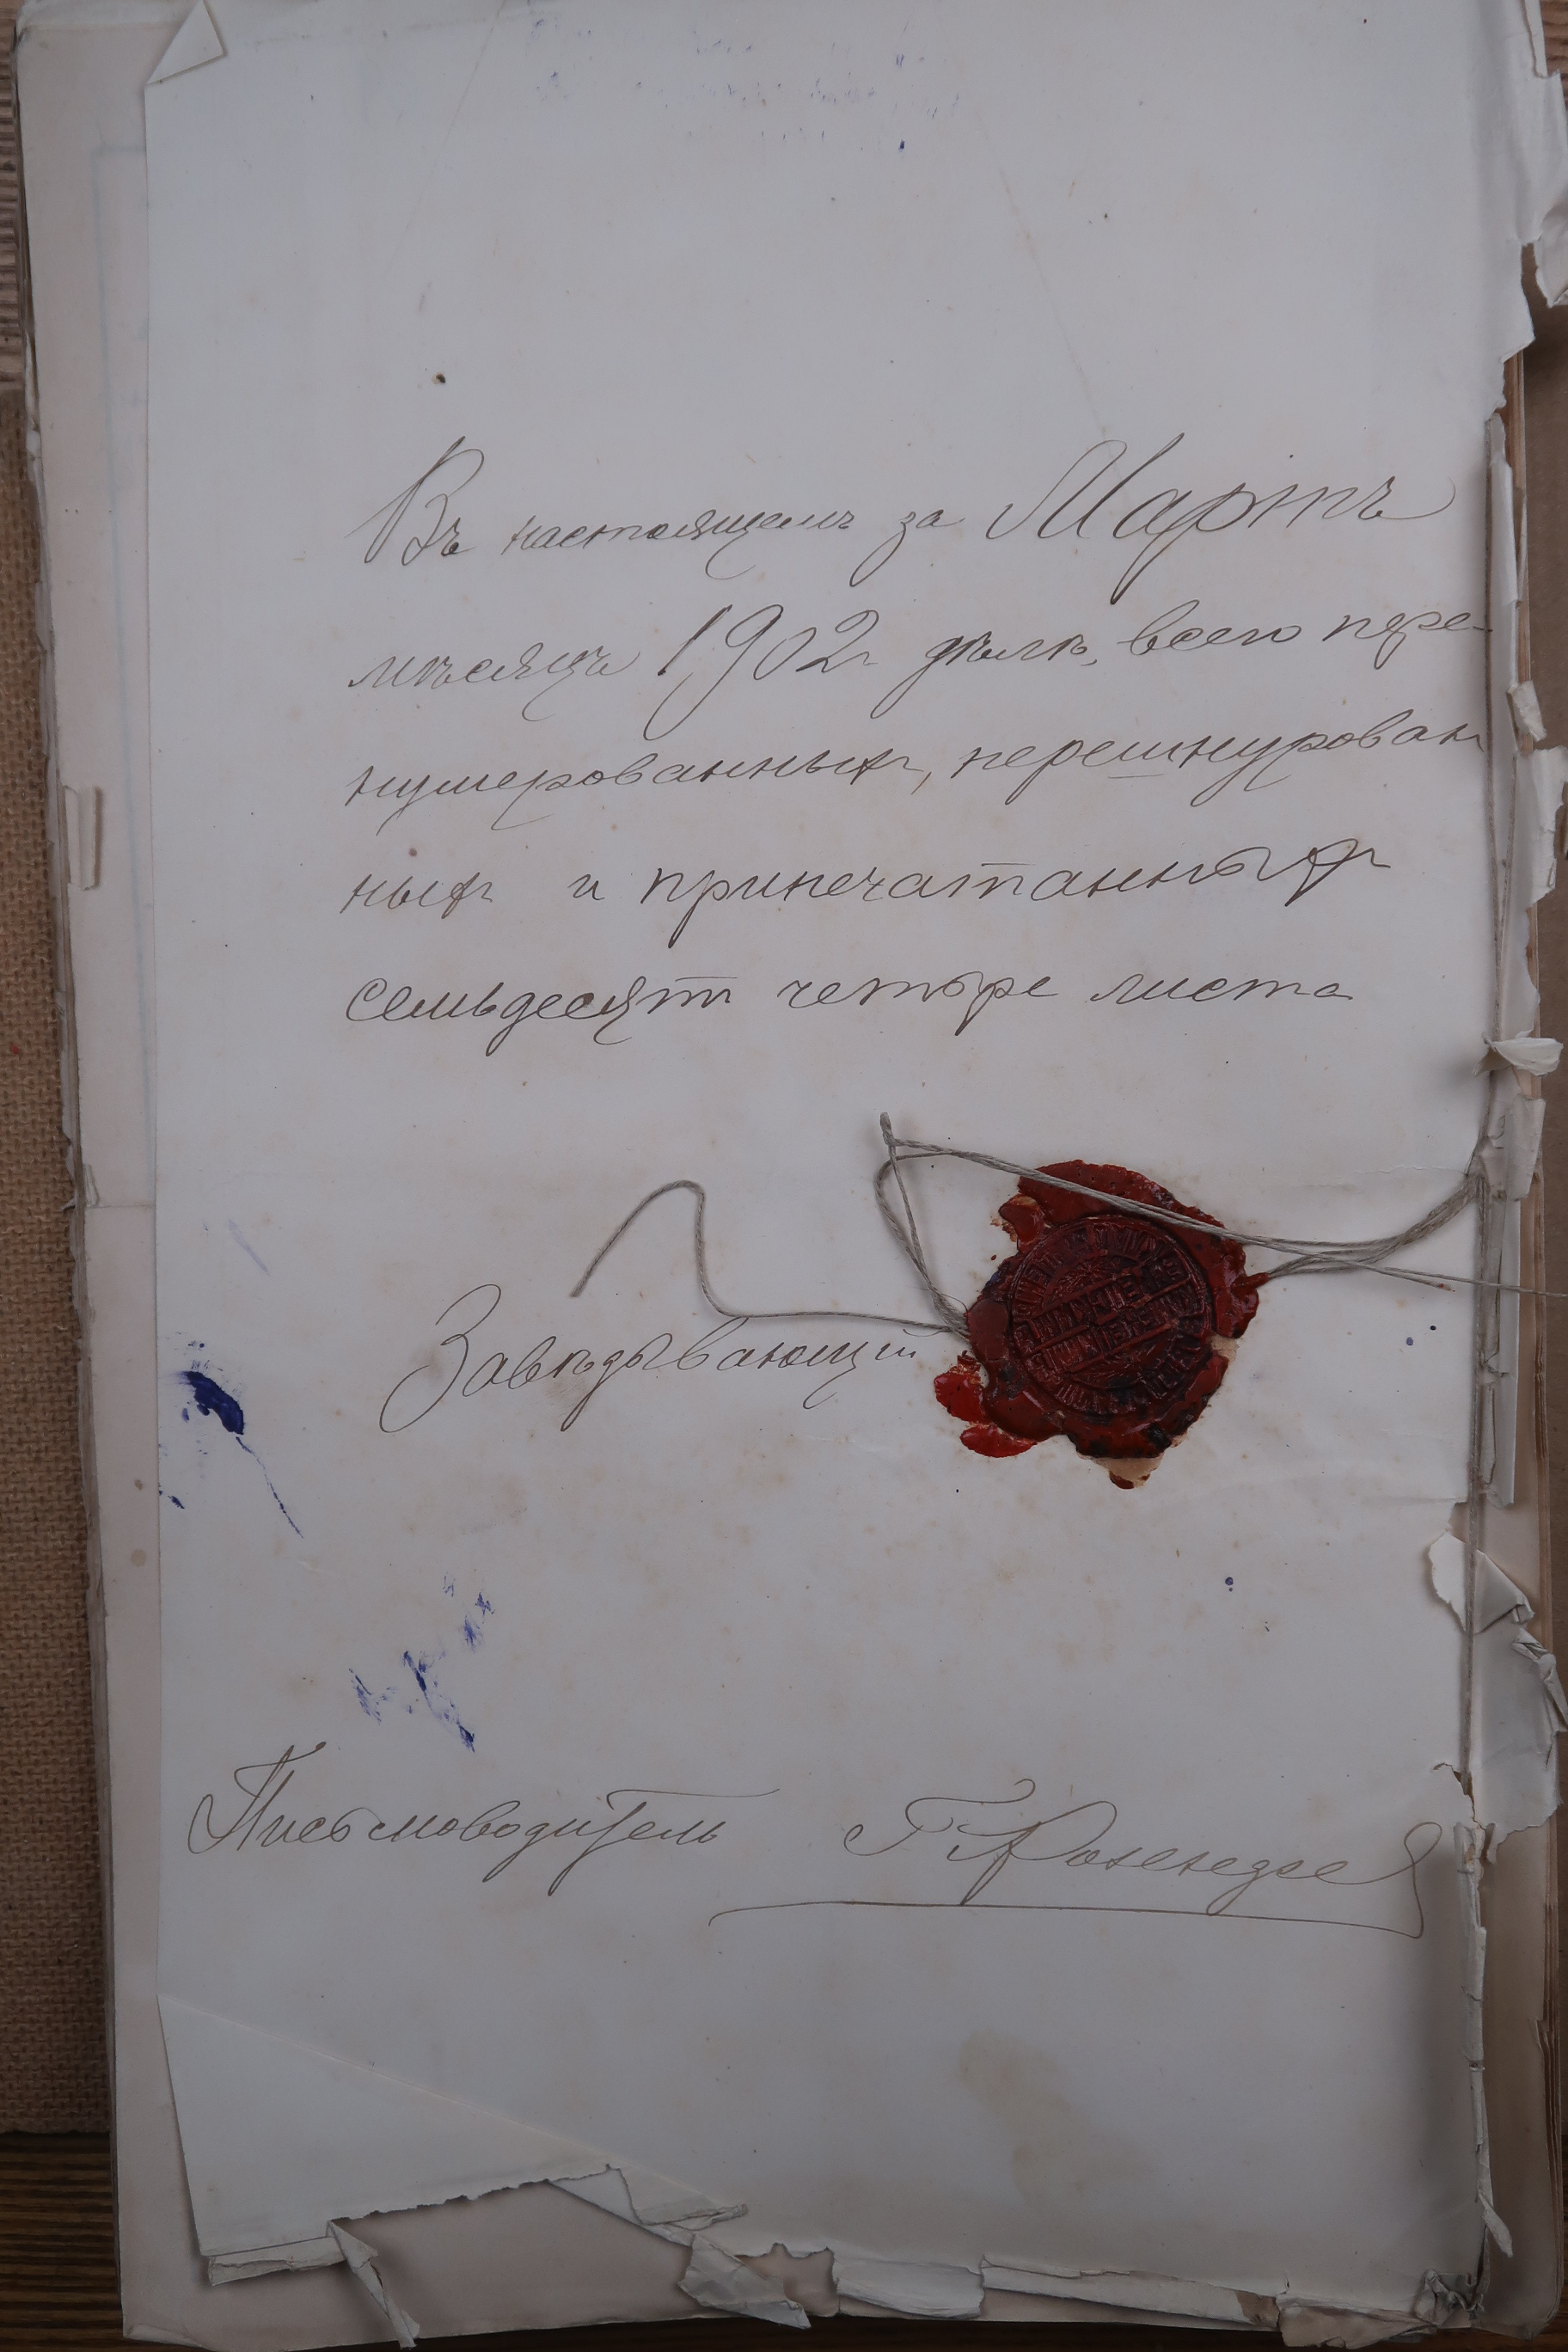 Въ настоящемъ за Мартъ
мѣсяцъ 1902 г дѣлѣ, всего пере-
нумерованныхъ, перешнурован
ныхъ и припечатанныхъ
семьдесятъ четыре листа
Завѣдывающій
Письмоводитель Г.